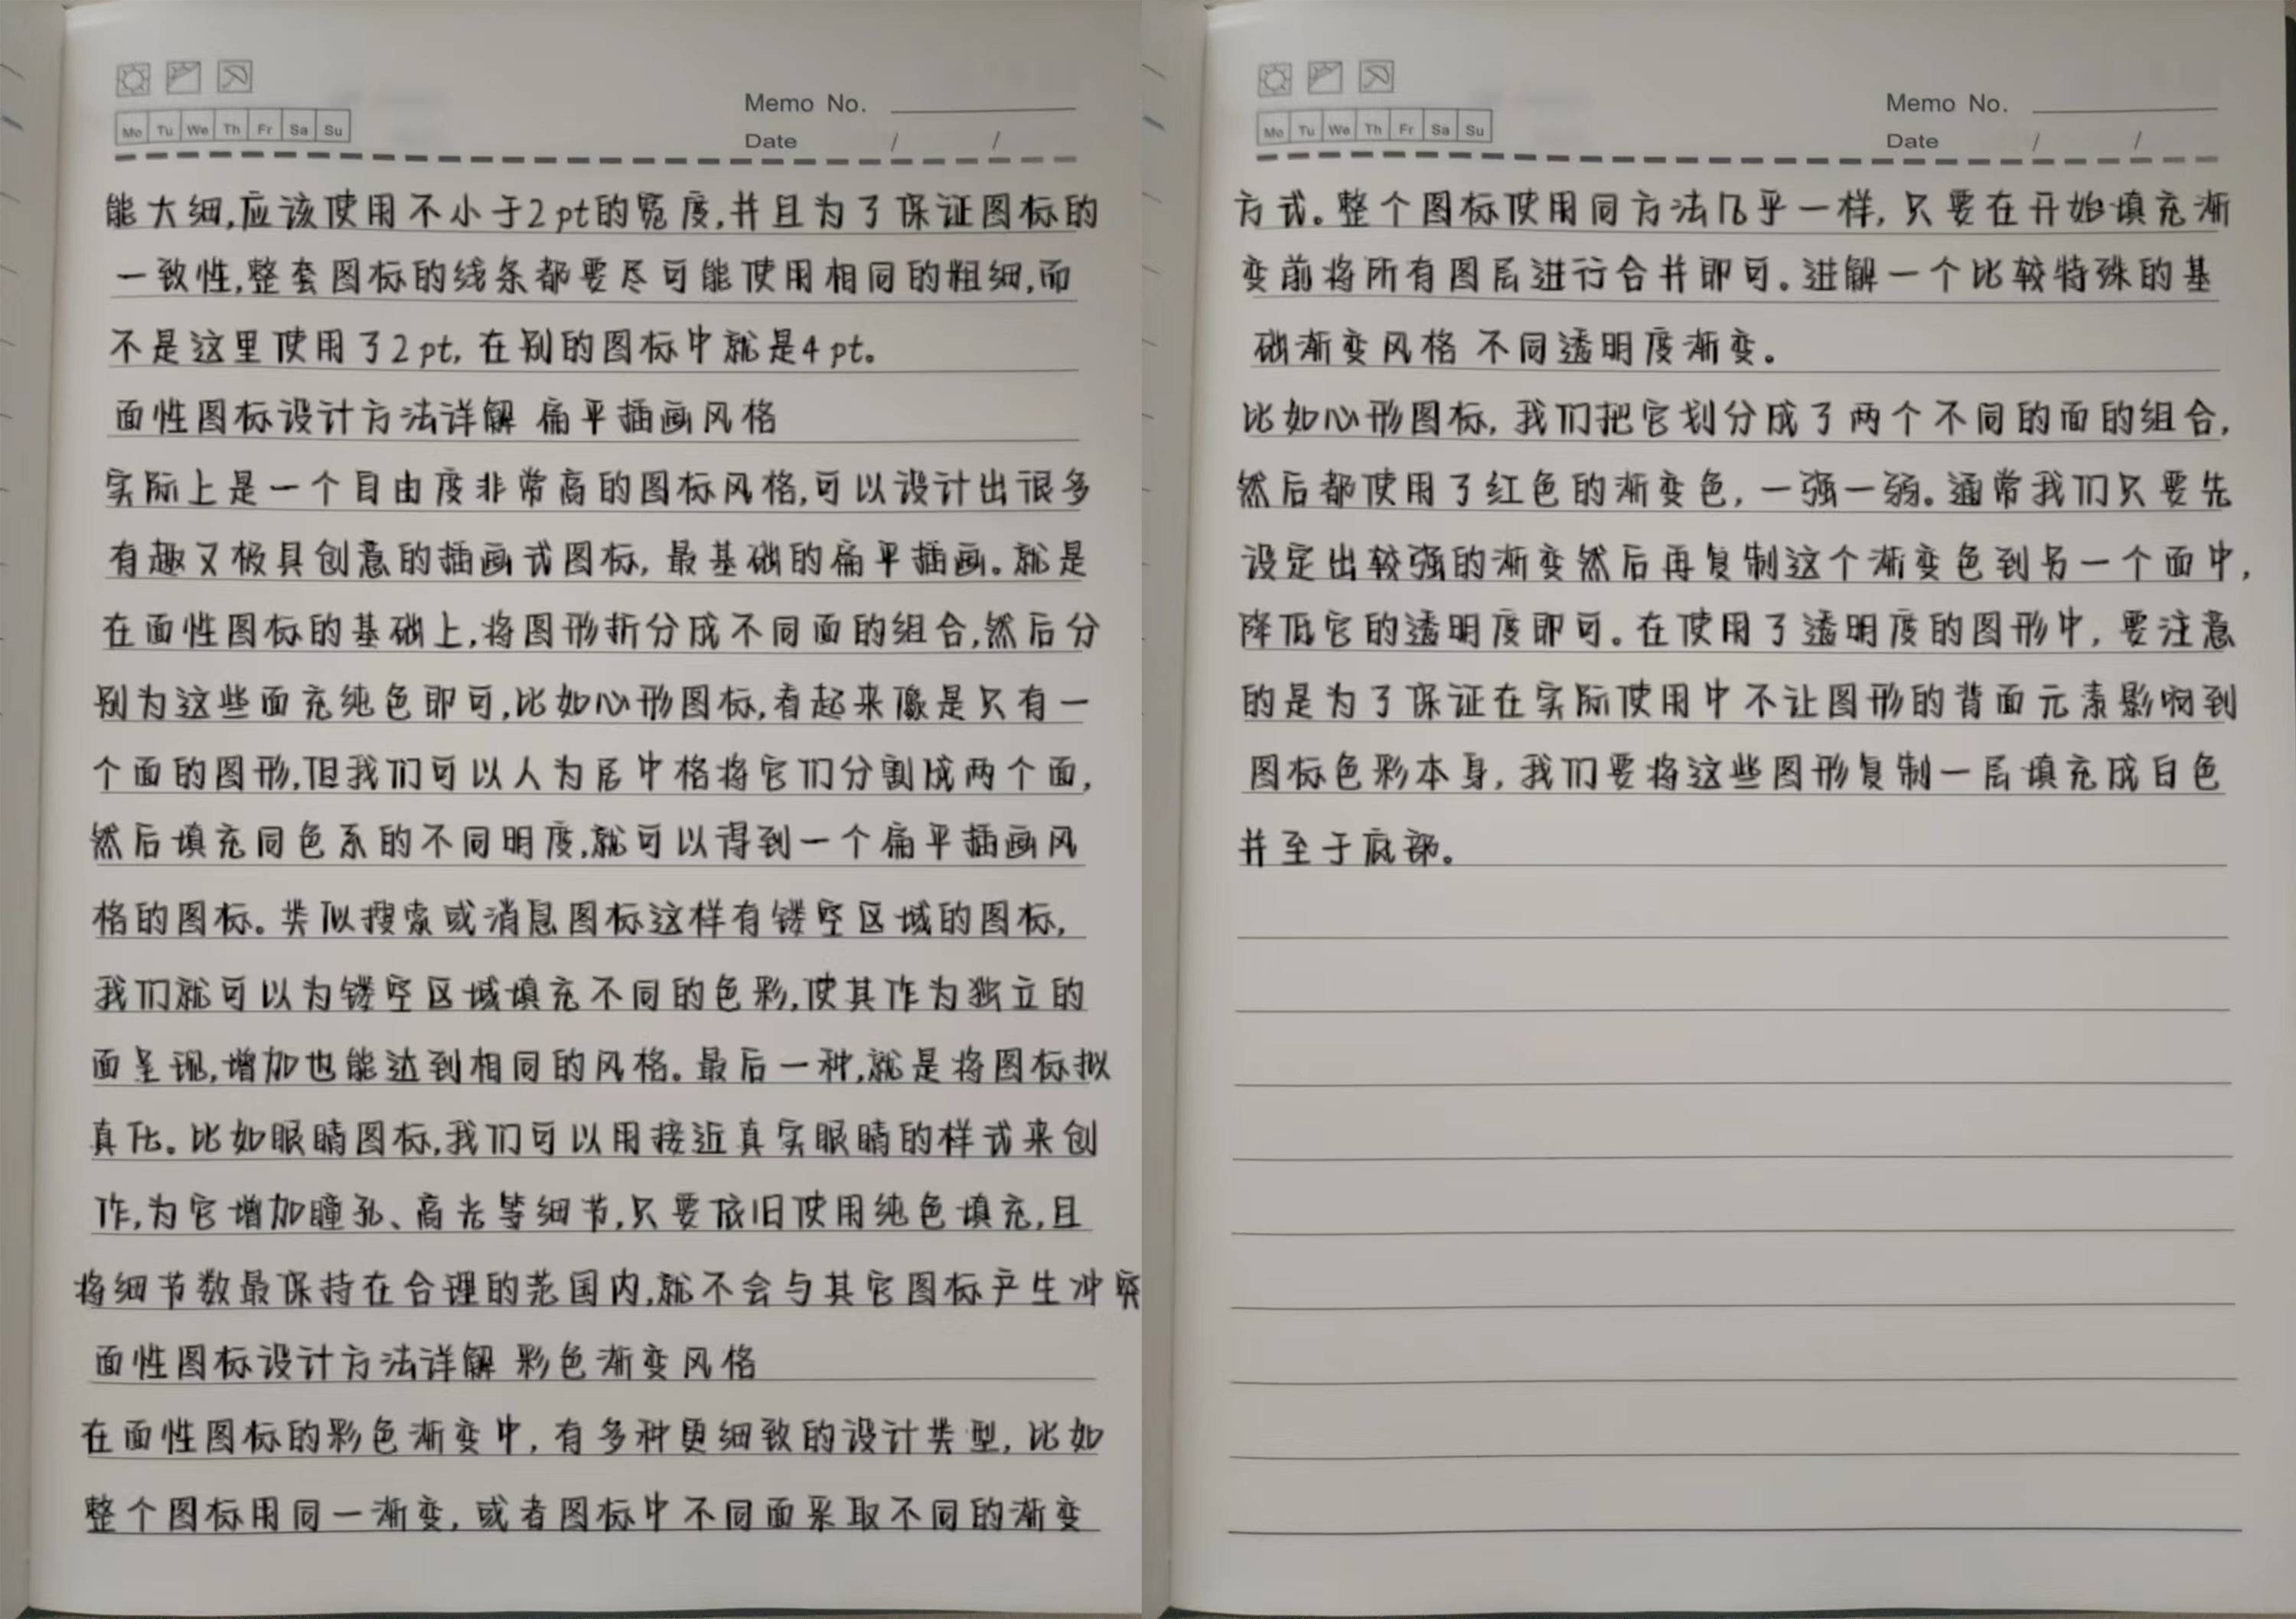 Mo Tu We Th Fr Sa Su
Memo No.
Date / /
能大细,应该使用不小于2pt的宽度,并且为了保证图标的
一致性,整套图标的线条都要尽可能使用相同的粗细,而
不是这里使用了2pt,在别的图标中就是4pt。
面性图标设计方法详解 扁平插画风格
实际上是一个自由度非常高的图标风格,可以设计出很多
有趣又极具创意的插画式图标,最基础的扁平插画。就是
在面性图标的基础上,将图形折分成不同面的组合,然后分
别为这些面充纯色即可,比如心形图标,看起来像是只有一
个面的图形,但我们可以人为居中格将它们分割成两个面,
然后填充同色系的不同明度,就可以得到一个扁平插画风
格的图标。类似搜索或消息图标这样有镂空区域的图标,
我们就可以为镂空区域填充不同的色彩,使其作为独立的
面呈现,增加也能达到相同的风格。最后一种,就是将图标拟
真化。比如眼睛图标,我们可以用接近真实眼睛的样式来创
作,为它增加瞳孔、高光等细节,只要依旧使用纯色填充,且
将细节数最保持在合理的范围内,就不会与其它图标产生冲突
面性图标设计方法详解 彩色渐变风格
在面性图标的彩色渐变中,有多种更细致的设计类型,比如
整个图标用同一渐变,或者图标中不同面采取不同的渐变
Mo Tu We Th Fr Sa Su
Memo No.
Date / /
方式。整个图标使用同方法几乎一样,只要在开始填充渐
变前将所有图层进行合并即可。进解一个比较特殊的基
础渐变风格 不同透明度渐变。
比如心形图标,我们把它划分成了两个不同的面的组合,
然后都使用了红色的渐变色,一强一弱。通常我们只要先
设定出较强的渐变然后再复制这个渐变色到另一个面中,
降低它的透明度即可。在使用了透明度的图形中,要注意
的是为了保证在实际使用中不让图形的背面元素影响到
图标色彩本身,我们要将这些图形复制一层填充成白色
并至于底部。